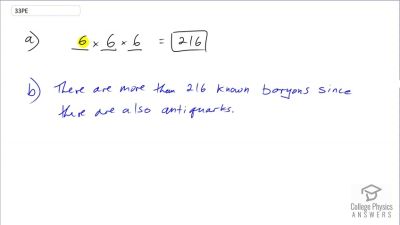 33PE
a) 6 × 6 × 6 = 216
b) There are more than 216 known baryons since
there are also antiquarks.
College Physics
ANSWERS